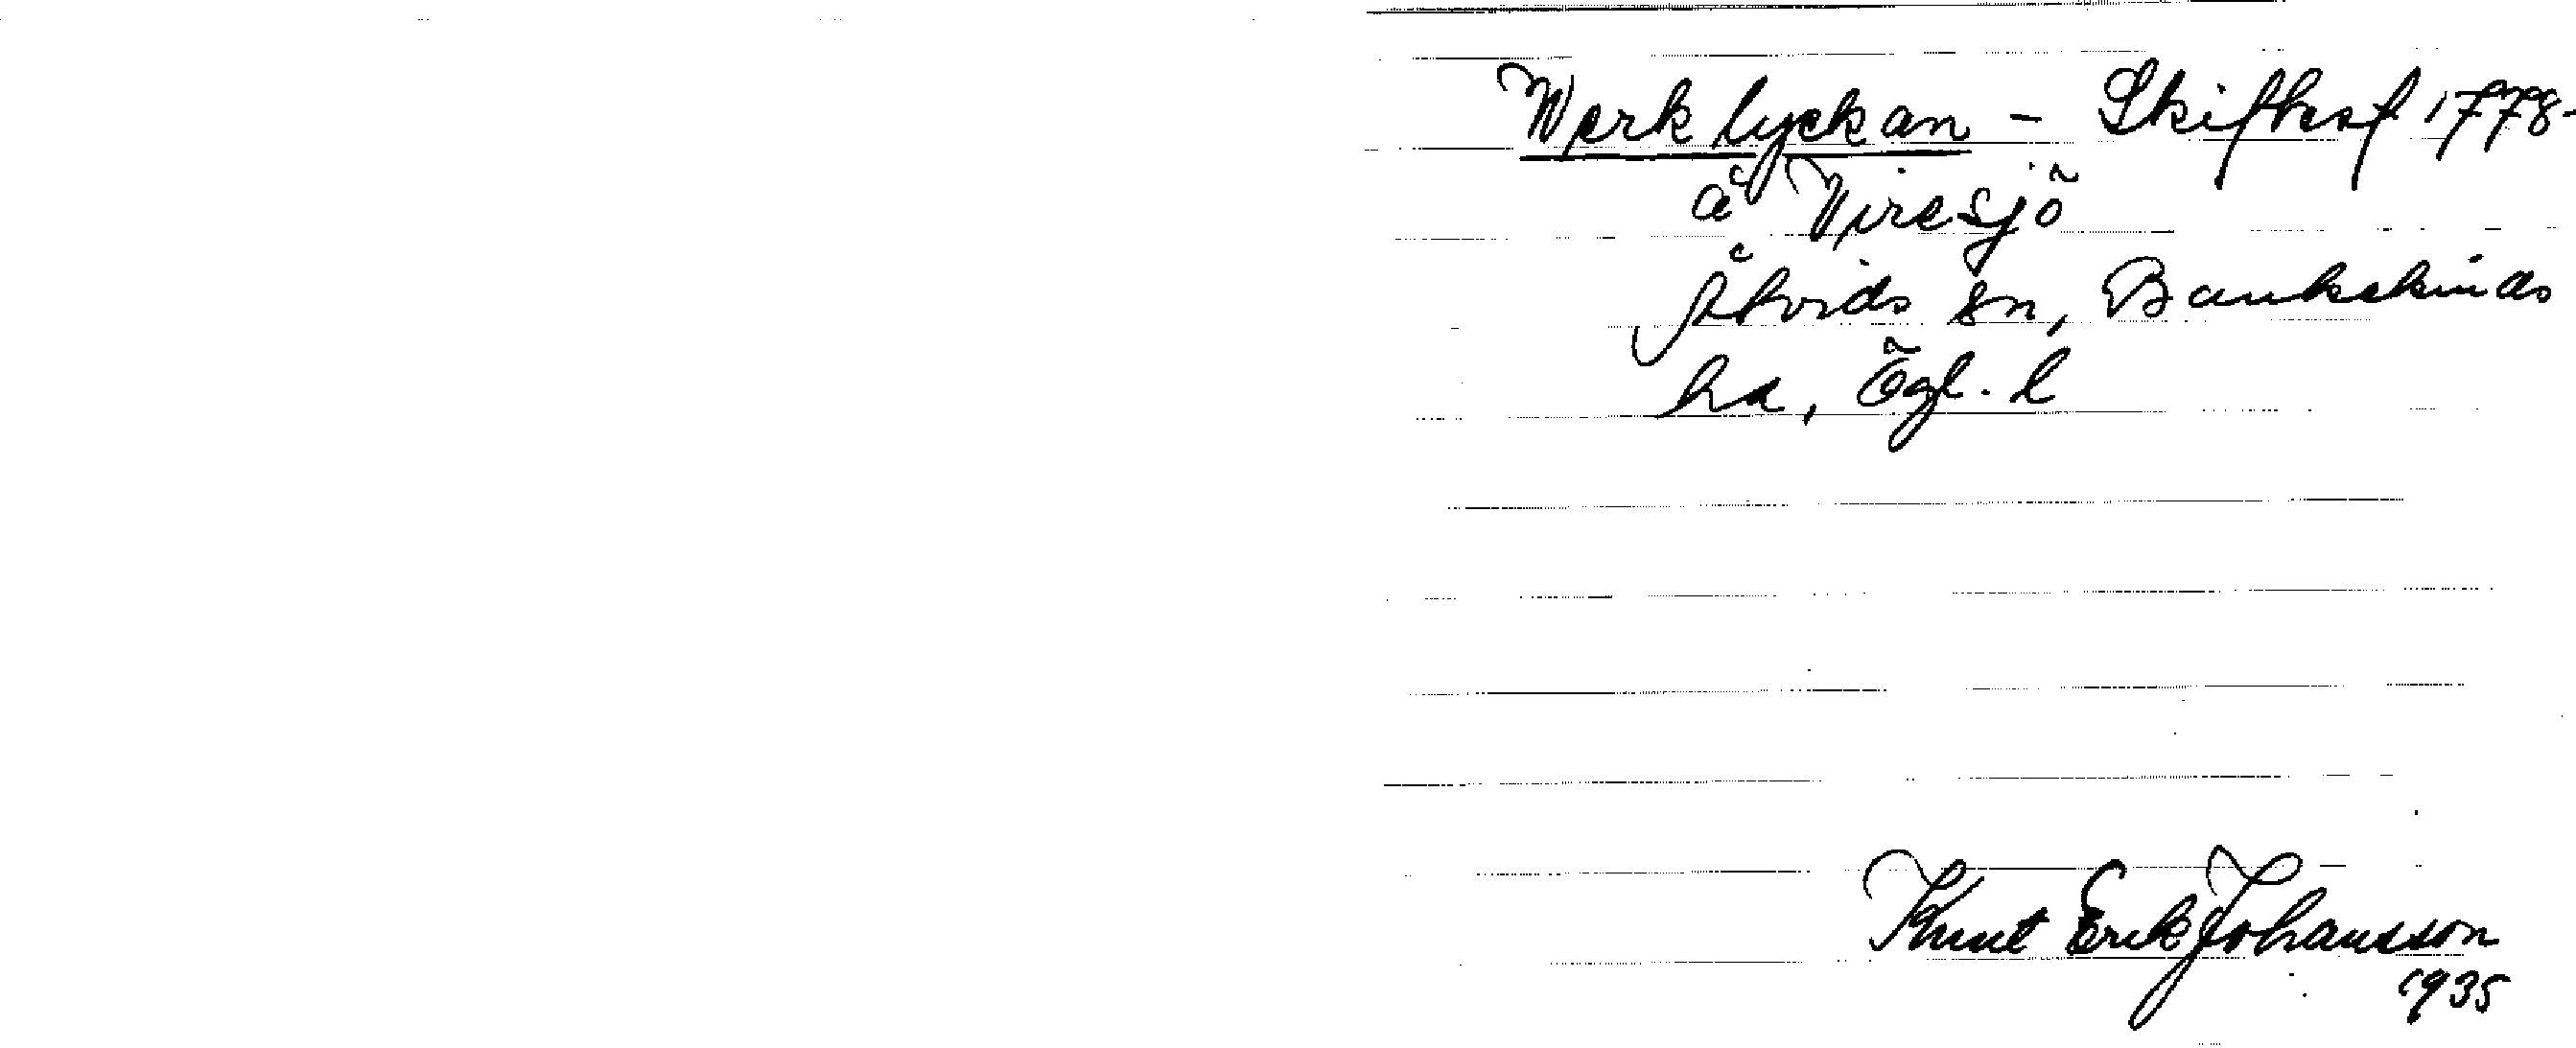 Werklyckan - Skifteskf 1778-
å Viresjö
Åtvids sn, Bankekinds
hd, Ögl. l
Knut Erik Johansson
1935